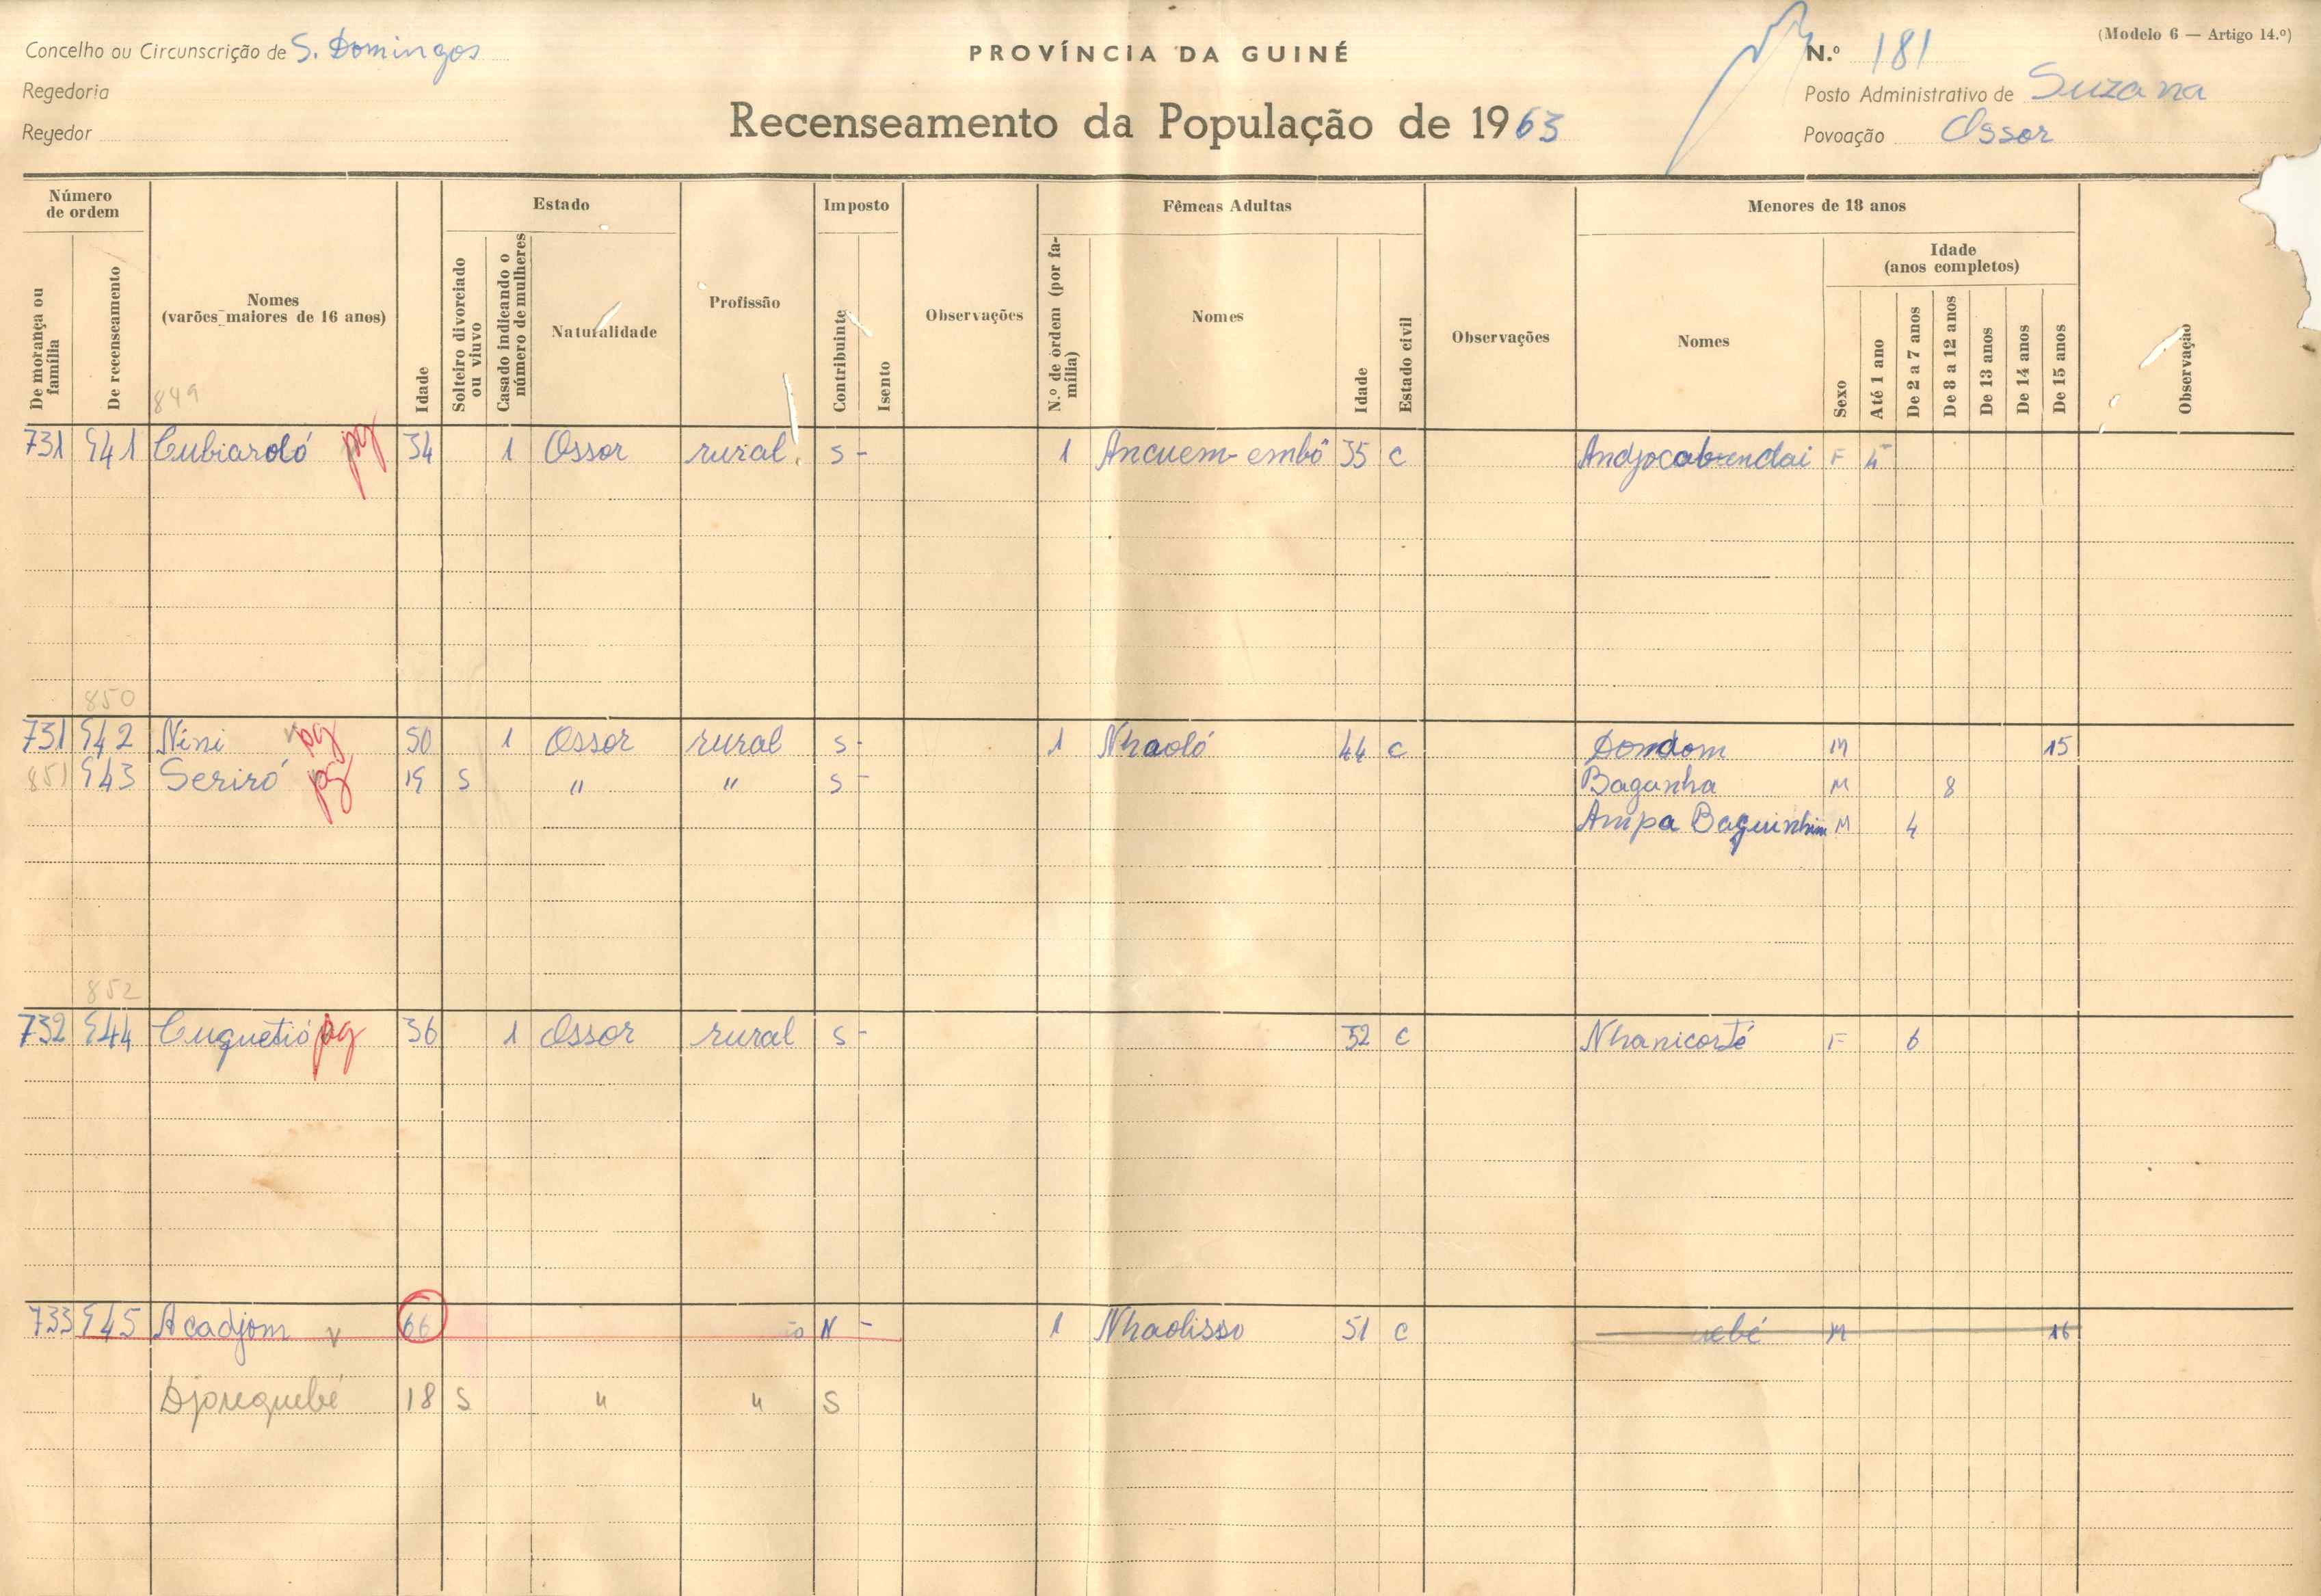 Concelho ou Circunscrição de S. Domingos
Regedoria
Regedor
PROVÍNCIA DA GUINÉ
Recenseamento da População de 1963
(Modelo 6 — Artigo 14.º)
N.º 181
Posto Administrativo de Suzana
Povoação Ossor
Número de ordem
De morança ou família
De recenseamento
Nomes (varões maiores de 16 anos)
Idade
Estado
Solteiro divorciado ou viuvo
Casado indicando o número de mulheres
Naturalidade
Profissão
Imposto
Contribuinte
Isento
Observações
Fêmeas Adultas
N.º de ordem (por família)
Nomes
Idade
Estado civil
Observações
Menores de 18 anos
Nomes
Sexo
Idade (anos completos)
Até 1 ano
De 2 a 7 anos
De 8 a 12 anos
De 13 anos
De 14 anos
De 15 anos
Observação
849
731 941 Cubiaroló pg 34 1 Ossor rural. S - 1 Ancuem-embô 35 C Andjocabendai F
850
731 942 Nini v pg 50 1 Ossor rural S - 1 Nhaoló 44 C Dondom M 15
851 943 Seriró pg 19 S " " S - Baganha M 8
Ampa Baguinhim M 4
852
732 944 Cuguetió pg 36 1 Ossor rural S - 52 C Nhanicorté F 6
733 945 Acadjom v 66 N - 1 Nhaolisso 51 C uebé M 16
Djonquebé 18 S " " S